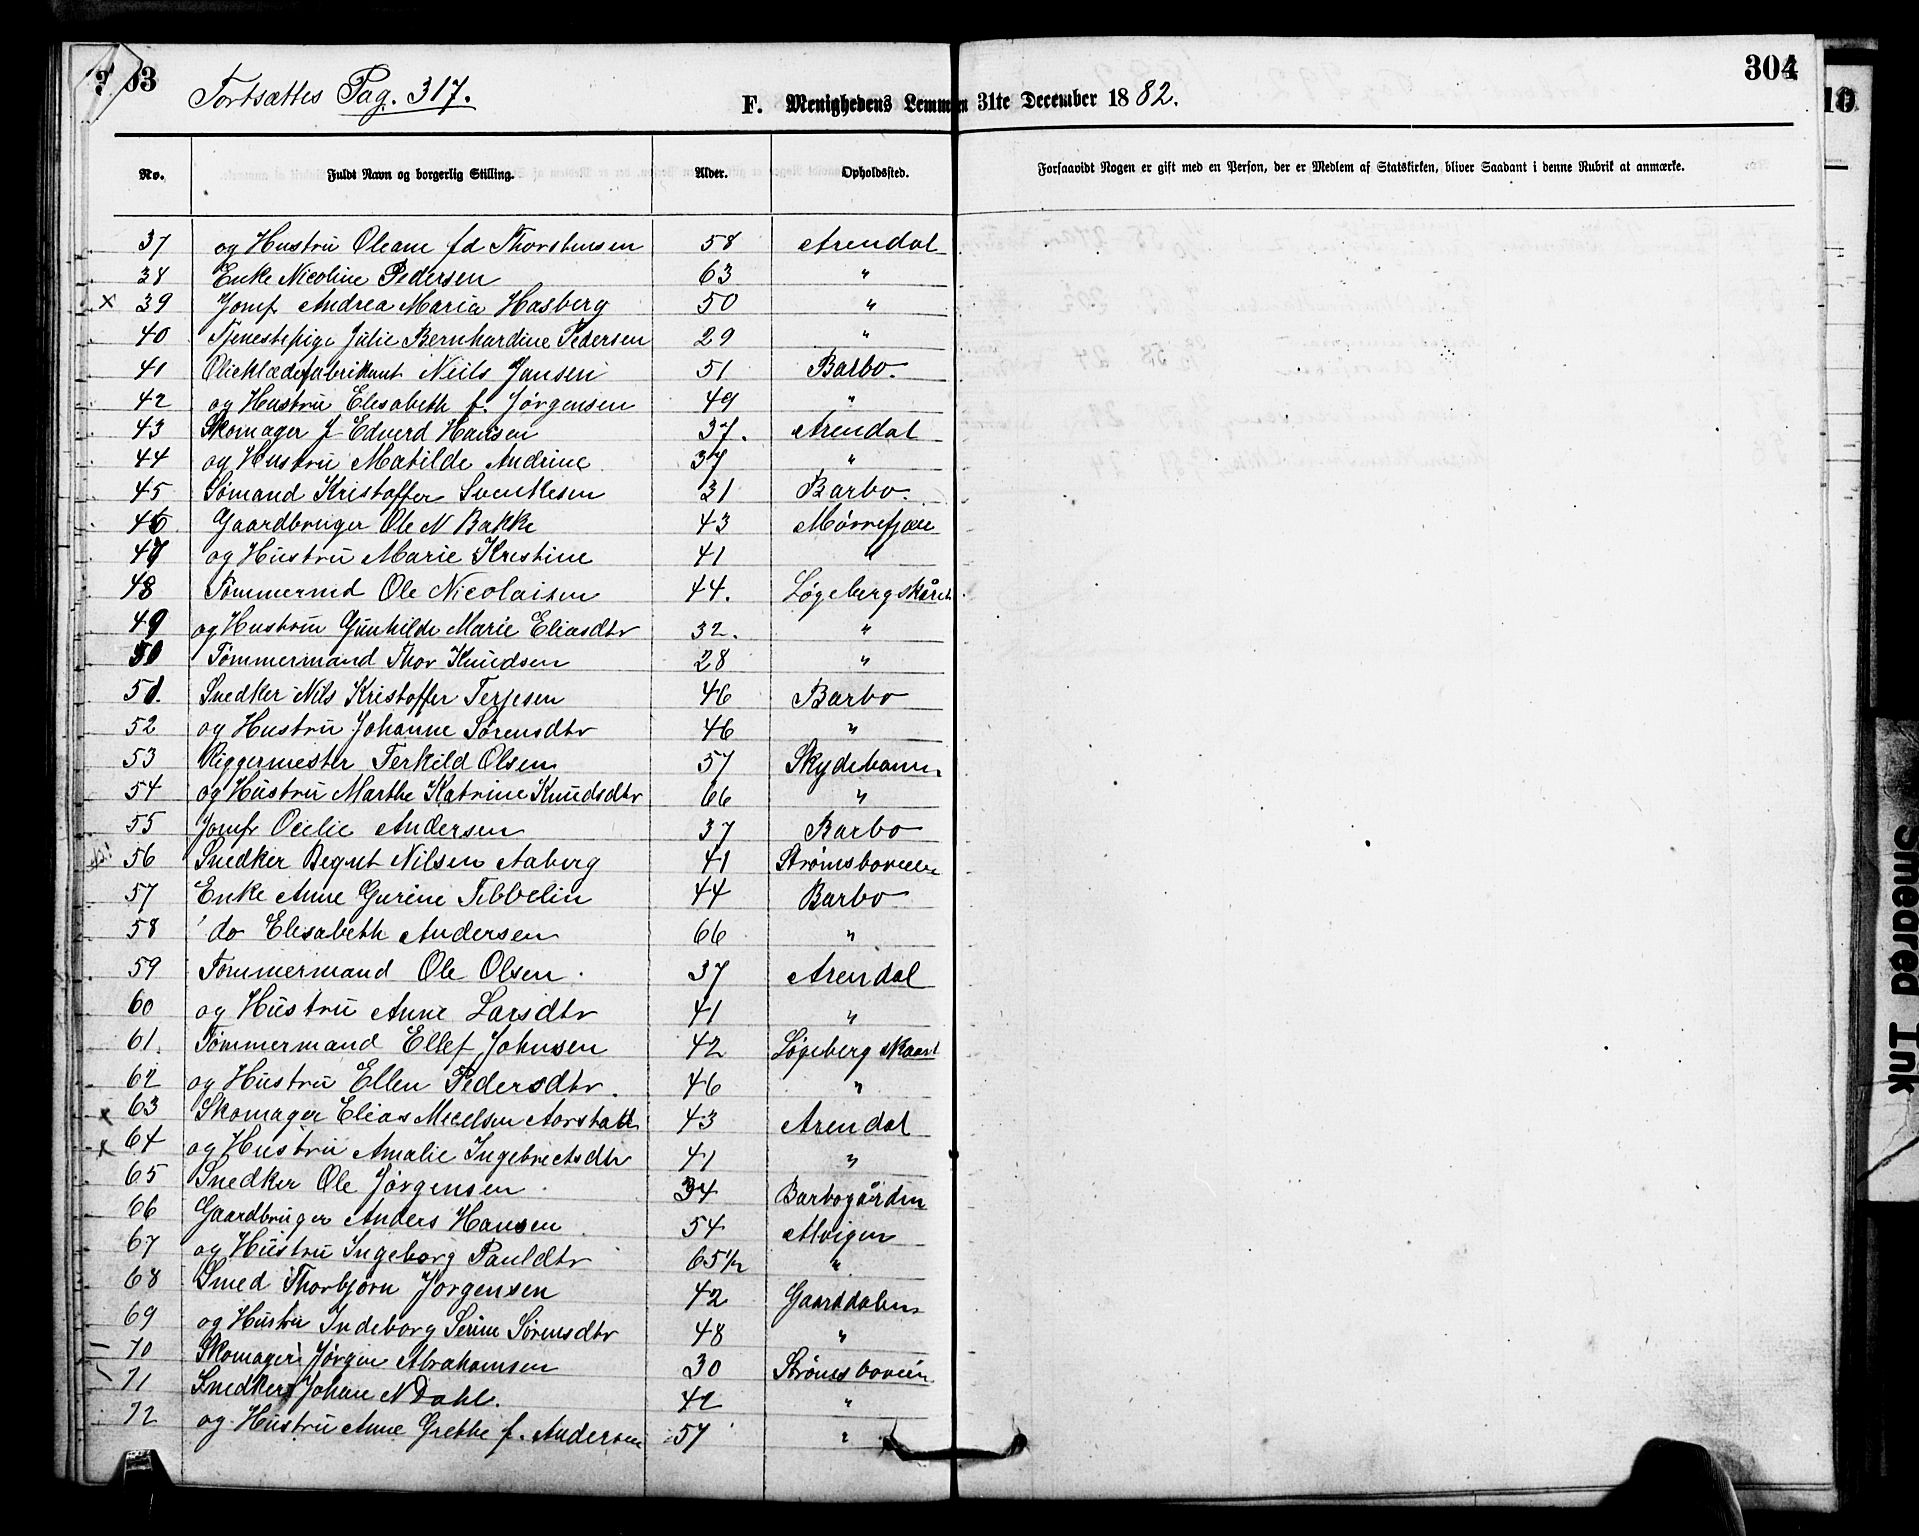 303
304
Fortsættes Pag. 317.
F. Menighedens Lemmer 31te December 1882.
No. Fuldt Navn og borgerlig Stilling. Alder. Opholdssted. Forsaavidt Nogen er gift med en Person, der er Medlem af Statskirken, bliver Saadant i denne Rubrik at anmærke.
37 og Hustru Oleane fd Thorstensen 58 Arendal
38 Enke Nicoline Pedersen 63 "
x 39 Jomf Andrea Maria Hasberg 50 "
40 Tjenestepige Julie Bernhardine Pedersen 29 "
41 Olieklædefabrikant Niils Jansen 51 Barbo.
42 og Hustru Elesabeth f. Jørgensen 49 "
43 Skomager J Edverd Hansen 37. Arendal
44 og Hustru Matilde Andrine 37 "
45 Sømand Kristoffer Svenkesen 31 Barbo.
46 Gaardbruger Ole N Bakke 43 Mørrefjær
47 og Hustru Marie Kristine 41 "
48 Tømmermd Ole Nicolaisen 44. Løgebergskåret
49 og Hustru Gunhilde Marie Eliasdtr 32. "
50 Tømmermand Thor Knudsen 28 "
51. Snedker Nils Kristoffer Terjesen 46 Barbo
52 og Hustru Johanne Sørensdtr 46 "
53 Riggermester Terkild Olsen 57 Skydebanen
54 og Hustru Marthe Katrine Knudsdtr 66 "
55 Jomfr Cecilie Andersen 37 Barbo
56 Snedker Begnt Nilsen Aaberg 41 Strømsboveien
57 Enke Anne Gurine Tibbelin 44 Barbo
58 do Elesabeth Andersen 66 "
59 Tømmermand Ole Olsen 37 Arendal
60 og Hustru Anne Larsdtr 41 "
61. Tømmermand Ellef Johnsen 42 Løgeberg skaaret
62 og Hustru Ellen Pedersdtr. 46 "
x 63 Skomager Elias Mecelsen 43 Arendal
x 64 og Hustru Amalie Ingebrictsdtr 41 "
65 Snedker Ole Jørgensen 34 Barbogården
66 Gaardbruger Anders Hansen 54 Alvigen
67 og Hustru Ingeborg Pauldtr 65 1/2 "
68 Smed Thorbjørn Jørgensen 42 Gaarddalen
69 og Hustru Indeborg Serine Sørensdtr 48 "
70 Skomager Jørgen Abrahamsen 30 Strømsboveien
71 Snedker Johan N Dahl. 42 "
72 og Hustru Anne Grethe f. Andersen 57 "
10
Smeared Ink